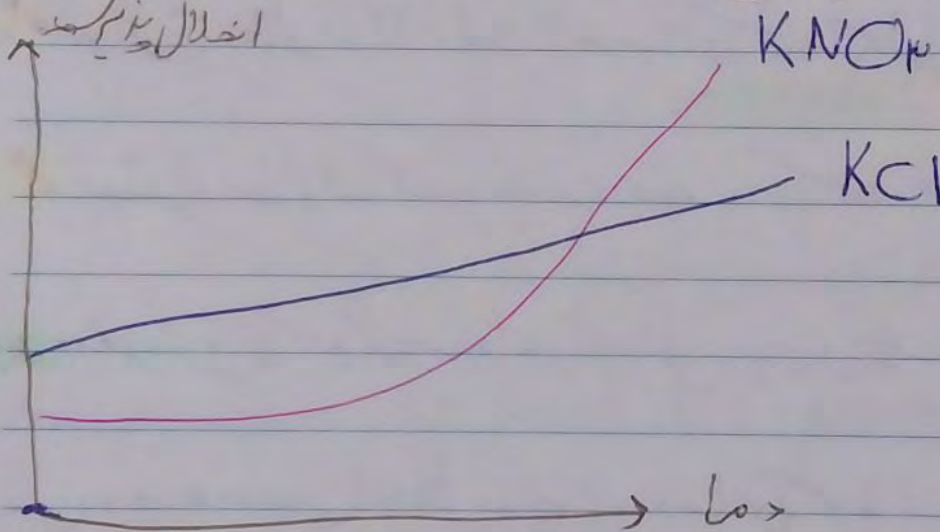 انحلال پذیری
KNO۳
KCl
دما